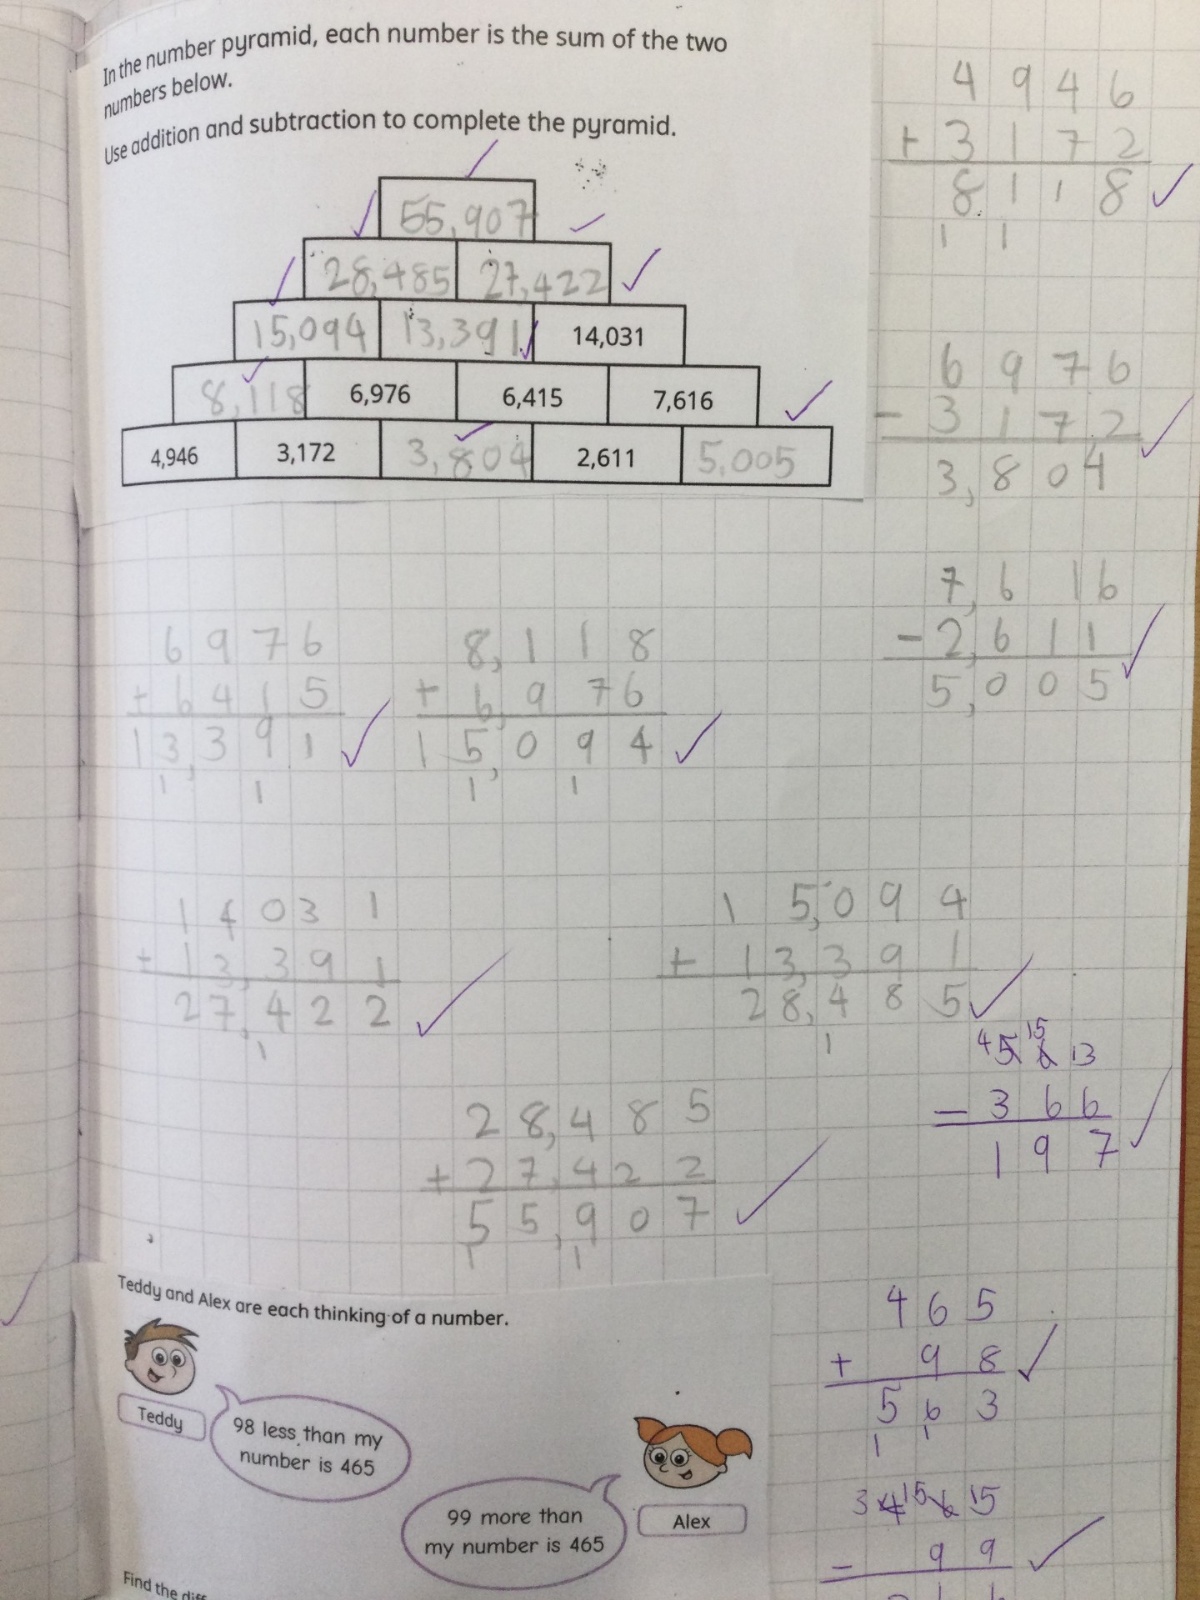 In the number pyramid, each number is the sum of the two
numbers below.
Use addition and subtraction to complete the pyramid.
55,907
28,485 27,422
15,094 13,391 14,031
8,118 6,976 6,415 7,616
4,946 3,172 3,804 2,611 5,005
4946
+3172
8118
1 1
6976
-3172
3,804
7,616
-2,611
5,005
6976
+6415
13,391
1 1
8,118
+6,976
15,094
1 1
14031
+13,391
27,422
1
15,094
+13,391
28,485
1
28,485
+27,422
55,907
1 1
4 5 15 6 13
-366
197
Teddy and Alex are each thinking of a number.
Teddy
98 less than my
number is 465
99 more than
my number is 465
Alex
Find the
465
+ 98
563
1 1
3 4 15 6 15
- 99